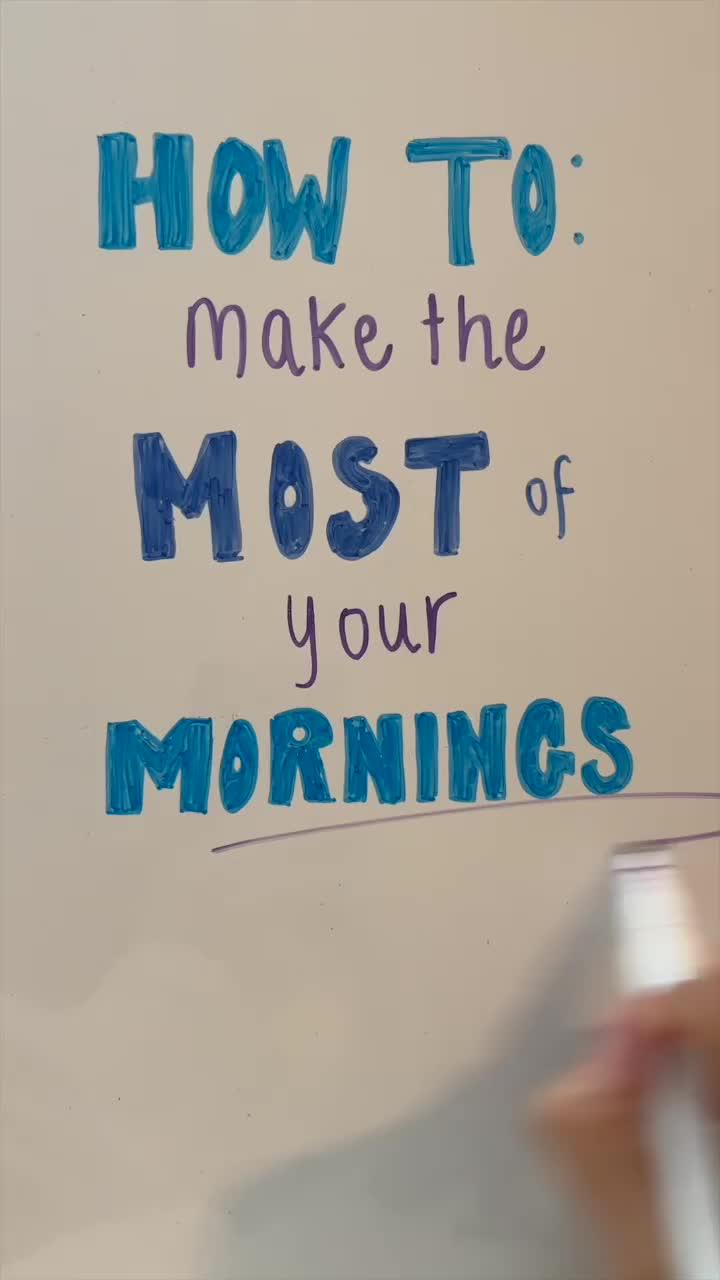 HOW TO:
make the
MOST of
your
MORNINGS